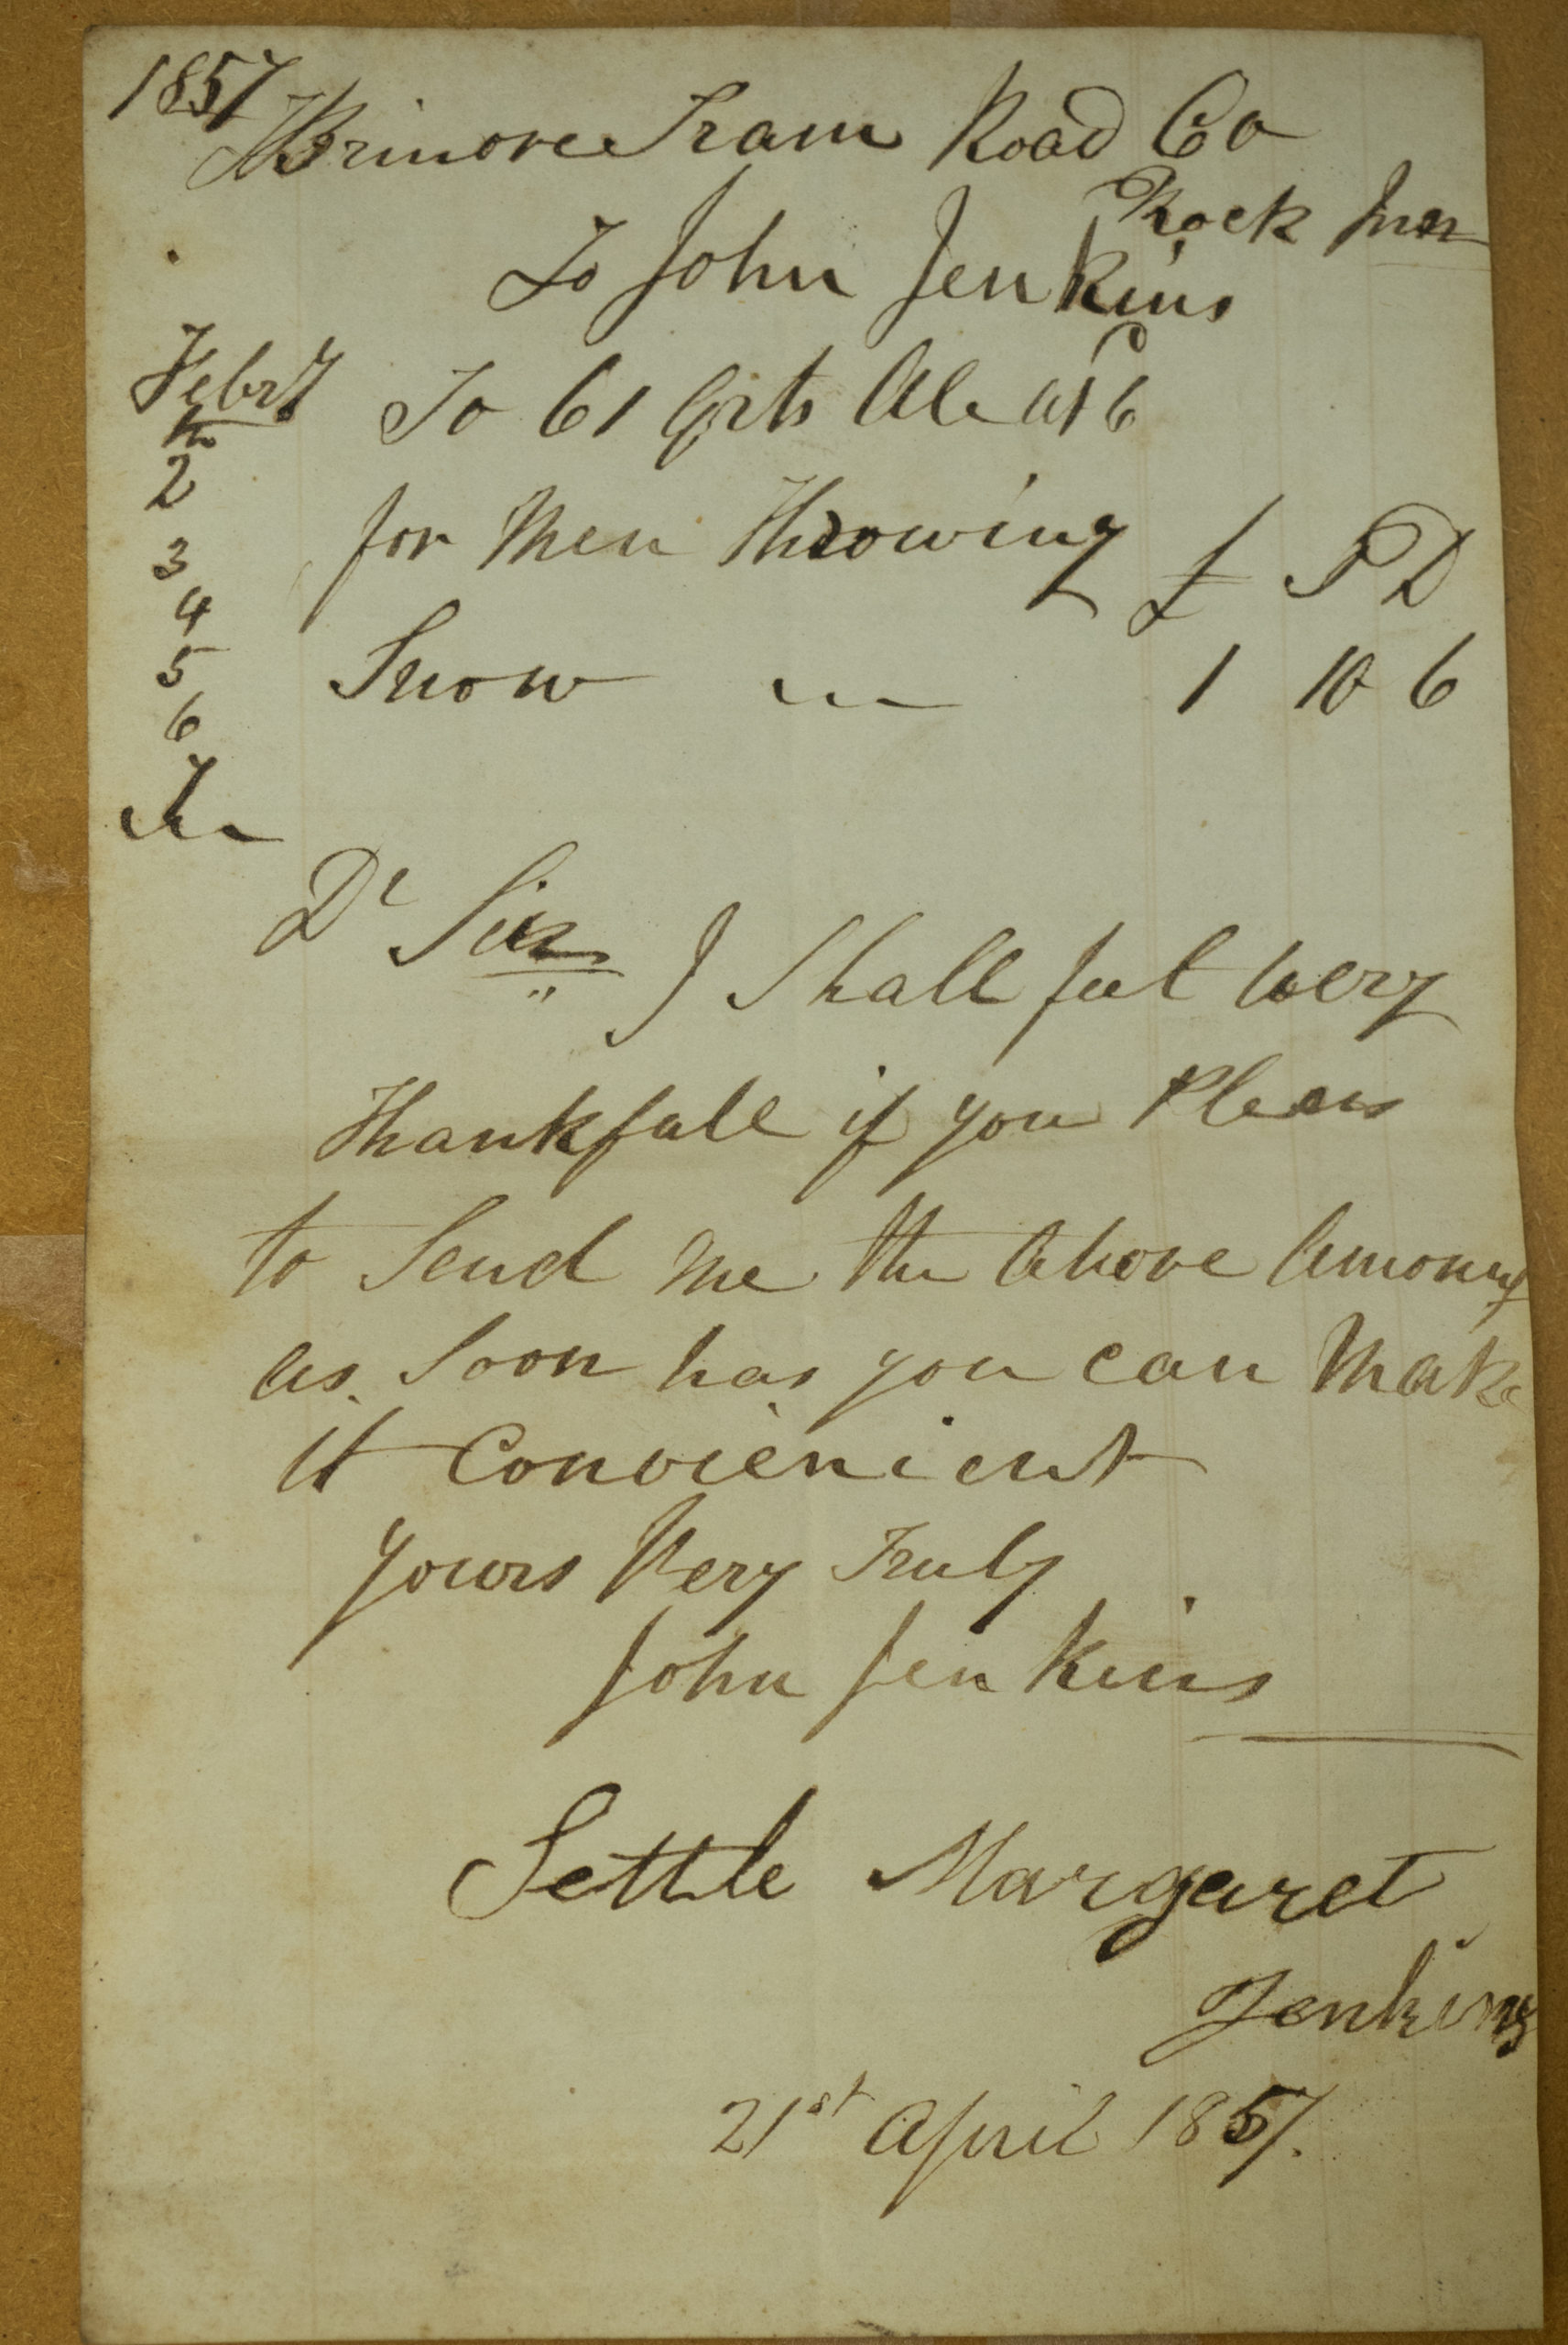 1857
Brinore Tram Road Co
Rock Inn
To John Jenkins
Febry To 61 Qrts Ale at 6
th
2
for Men Throwing £ S D
3
4
Snow 1 10 6
5
6
7
th
Dr Sir
I Shall feel Very
Thankfull if you Pleas
to Send me the Above Amount
as Soon has you can Make
it Convienient
yours Very Truly
John Jenkins
Settle Margaret
Jenkins
21st April 1857.